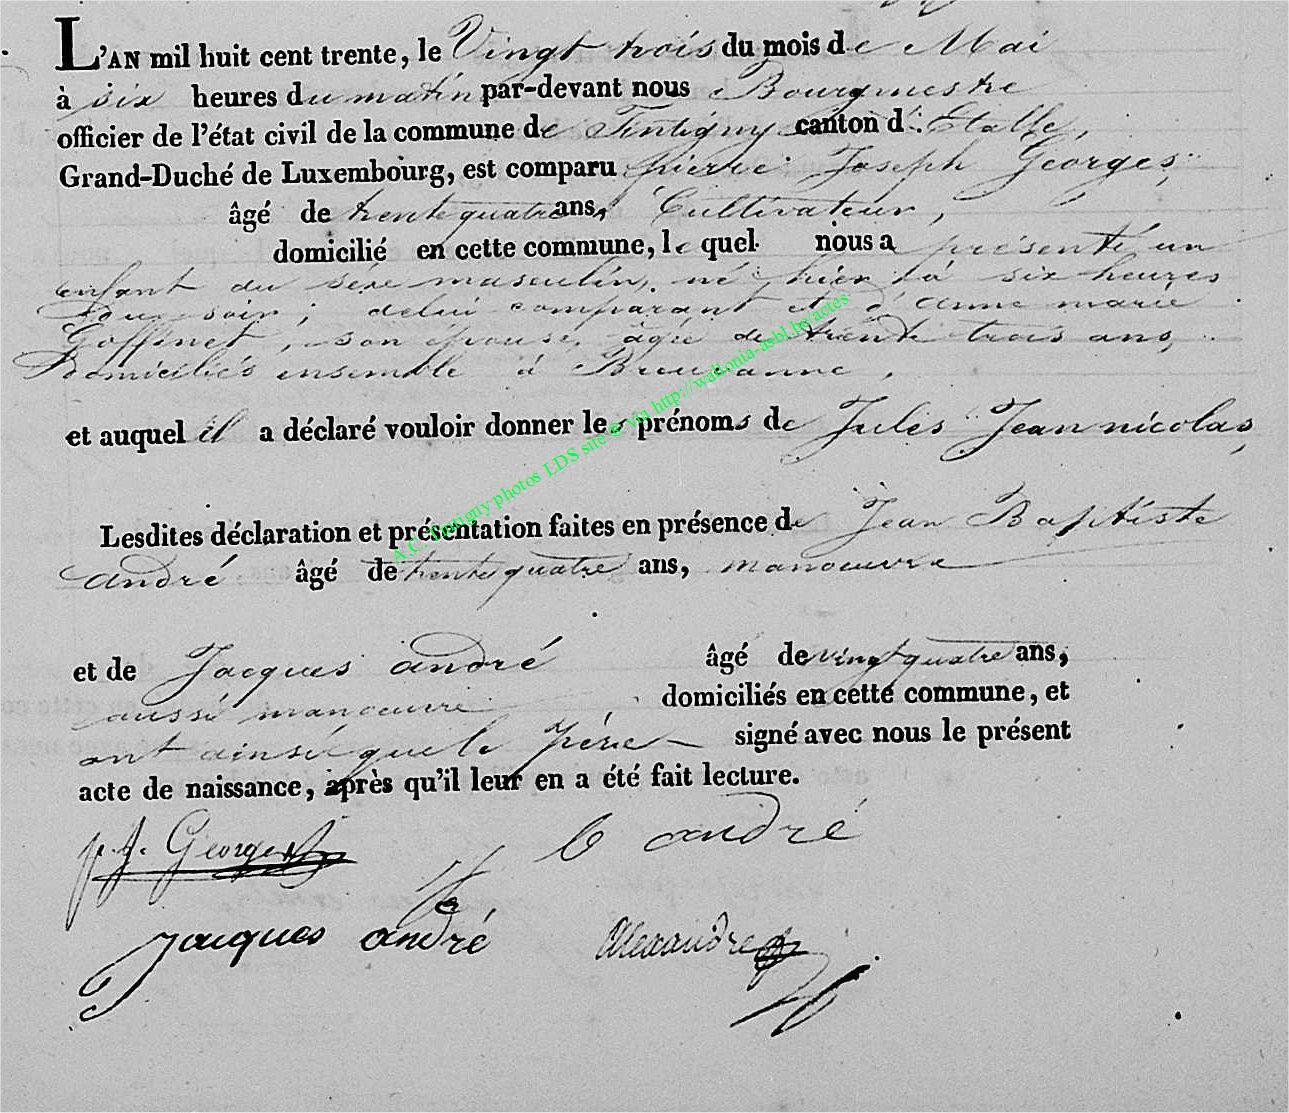 L'AN mil huit cent trente, le Vingt trois du mois de Mai
à six heures du matin par-devant nous Bourgmestre
officier de l'état civil de la commune de Tintigny canton d'Etalle,
Grand-Duché de Luxembourg, est comparu pierre Joseph Georges,
âgé de trente quatre ans, Cultivateur,
domicilié en cette commune, lequel nous a présenté un
enfant du sexe masculin, né hier à six heures
du soir, de lui comparant et d'anne marie
Goffinet, son épouse, agée de trente trois ans,
Domiciliés ensemble à Breuvanne,
et auquel il a déclaré vouloir donner les prénoms de Jules Jean nicolas,
Lesdites déclaration et présentation faites en présence de Jean Baptiste
andré âgé de trente quatre ans, manoeuvre
et de Jacques andré âgé de vingt quatre ans,
aussi manoeuvre domiciliés en cette commune, et
ont ainsi que le père signé avec nous le présent
acte de naissance, après qu'il leur en a été fait lecture.
p. j. Georges andré
Jacques andré Alexandre
A.C. Tintigny photos LDS site © via http://wallonia-asbl.be/actes